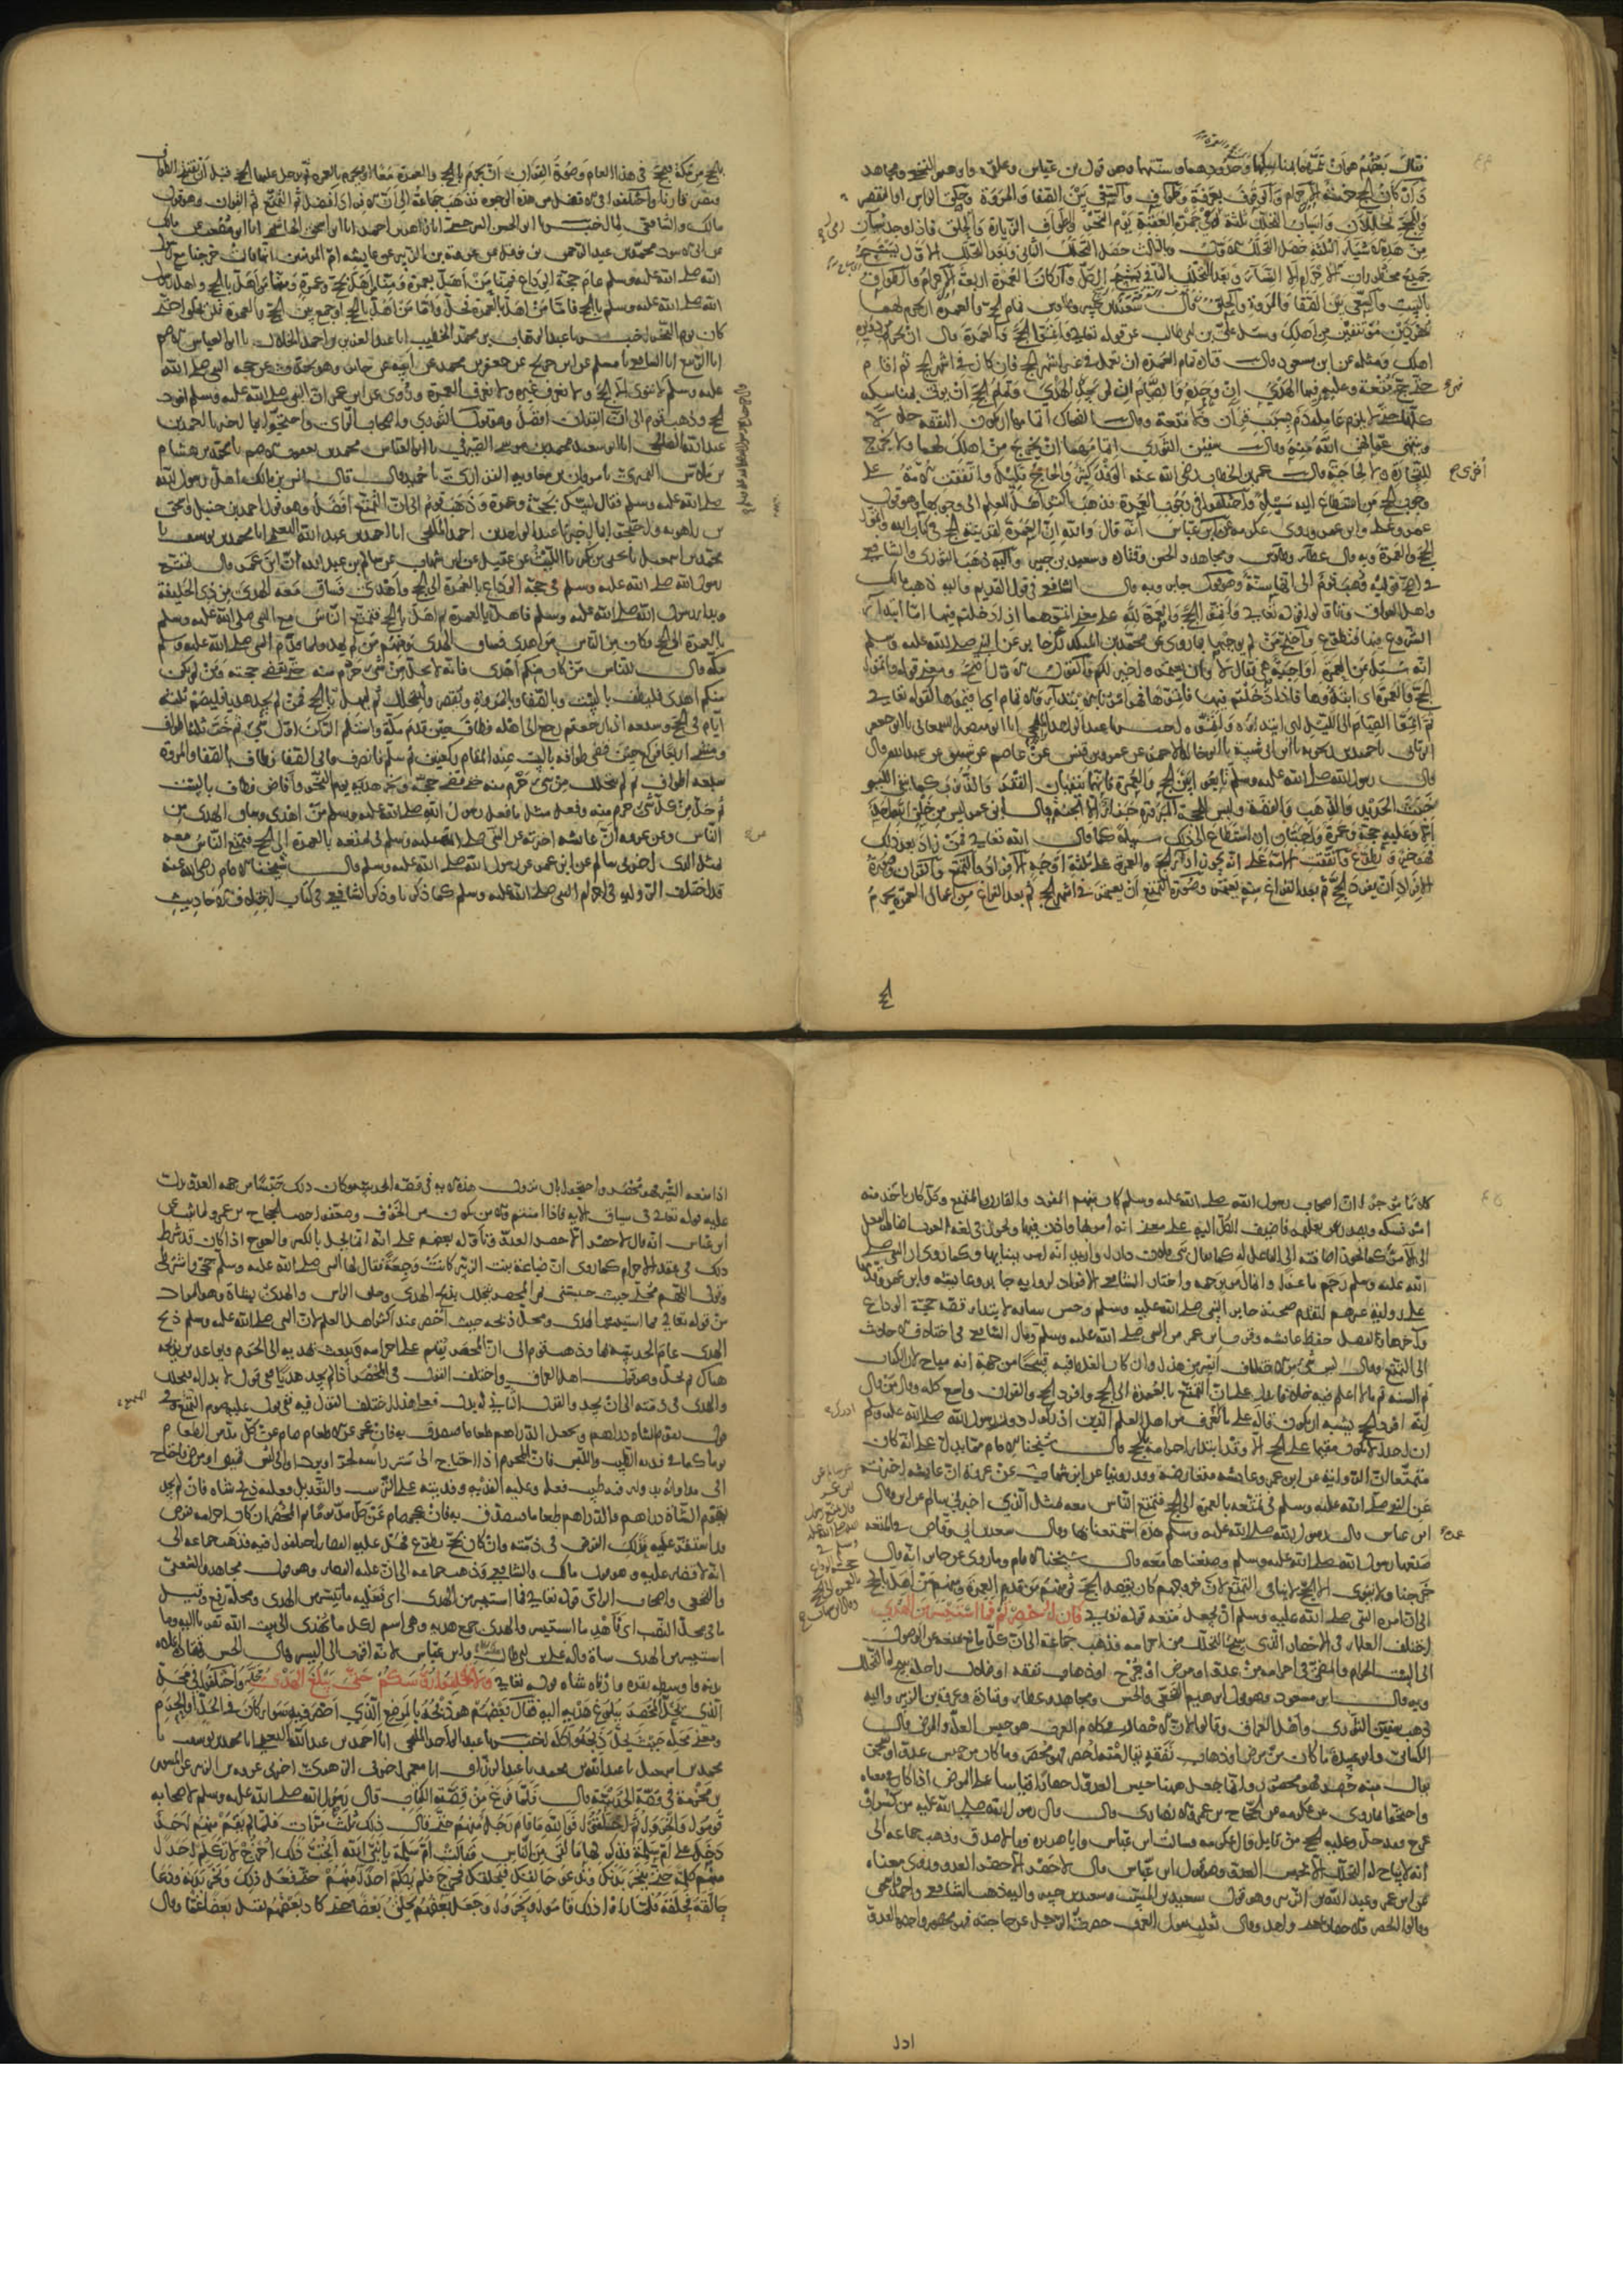 فقال بعضهم هو ان تتمهما بمناسكهما وحدودهما وسننهما وهو قول ابن عباس وعلقمة وابرهيم النخعي ومجاهد
واركان الحج خمسة الاحرام والوقوف بعرفة والطواف والسعي بين الصفا والمروة وحلق الراس او التقصير
وللحج تحللان واسباب التحلل ثلثة رمي جمرة العقبة يوم النحر وطواف الزيارة والحلق فاذا وجد شيآن
من هذه الاشياء الثلثة حصل التحلل الاول وبالثالث حصل التحلل الثاني وبعد التحلل الاول يستبيح
جميع محظورات الاحرام الا النساء وبعد التحلل الثاني يستبيح الكل واركان العمرة اربعة الاحرام والطواف
بالبيت والسعي بين الصفا والمروة والحلق وقال سعيد بن جبير وطاوس تمام الحج والعمرة ان تحرم بهما
مفردين مؤتنفين من اهلك وسئل علي بن ابي طالب عن قوله تعالى واتموا الحج والعمرة قال ان تحرم من دويرة
اهلك ومثله عن ابن مسعود وقال قتادة تمام العمرة ان تعمل في غير اشهر الحج فان كان في اشهر الحج ثم اقام
حتى حج فهي متعة وعليه فيها الهدي ان وجده او الصيام ان لم يجد الهدي وتمام الحج ان يؤتى بمناسكه
كلها حتى لا يلزم عامله دم بسبب قران ولا متعة وقال الضحاك اتمامهما ان تكون النفقة حلالا
وينتهي عما نهى الله عنه وقال سفين الثوري اتمامهما ان تخرج من اهلك لهما ولا تخرج
للتجارة ولا لحاجة وقال عمر بن الخطاب رضي الله عنه الوفد كثير والحاج قليل واتفقت الامة على
وجوب الحج على من استطاع اليه سبيلا واختلفوا في وجوب العمرة فذهب اكثر اهل العلم الى وجوبها وهو قول
عمر وعلي وابن عمر وروى عكرمة عن ابن عباس انه قال والله ان العمرة لقرينة الحج في كتاب الله واتموا
الحج والعمرة وبه قال عطاء وطاوس ومجاهد والحسن وقتادة وسعيد بن جبير واليه ذهب الثوري والشافعي
في اصح قوليه وذهب قوم الى انها سنة وهو قول جابر وبه قال الشافعي في قوله القديم واليه ذهب مالك
واهل العراق وتأولوا قوله تعالى واتموا الحج والعمرة لله على معنى اتموهما اذا دخلتم فيهما اما ابتداء
الشروع فيها فتطوع واحتج من لم يوجبها بما روي عن محمد بن المنكدر عن جابر عن النبي صلى الله عليه وسلم
انه سئل عن العمرة اواجبة هي فقال لا وان تعتمروا خير لكم والقول الاول اصح ومعنى قوله واتموا
الحج والعمرة اي ابتدؤها فاذا دخلتم فيها فاتموها فهو امر بالابتداء والاتمام اي اقيموها كقوله تعالى
ثم اتموا الصيام الى الليل اي ابتدئوه واتموه اخبرنا عبد الواحد المليحي انا ابو منصور السمعاني نا ابو جعفر
الرياني نا حميد بن زنجويه نا ابن ابي شيبة نا ابو خالد الاحمر عن عمرو بن قيس عن عاصم عن شقيق عن عبد الله قال
قال رسول الله صلى الله عليه وسلم تابعوا بين الحج والعمرة فانهما ينفيان الفقر والذنوب كما ينفي الكير
خبث الحديد والذهب والفضة وليس للحجة المبرورة جزاء الا الجنة وقال ابن عمر ليس من خلق الله احد
الا وعليه حجة وعمرة واجبتان ان استطاع الى ذلك سبيلا كما قال الله تعالى فمن زاد بعد ذلك
فهو خير وتطوع واتفقت الامة على انه يجوز اداء الحج والعمرة على ثلثة اوجه الافراد والتمتع والقران وصورة
الافراد ان يفرد الحج ثم بعد الفراغ منه يعتمر وصورة التمتع ان يعتمر في اشهر الحج ثم بعد الفراغ من اعمال العمرة يحرم
بالحج من مكة فيحج في هذا العام وصورة القران ان يحرم بالحج والعمرة معا او يحرم بالعمرة ثم يدخل عليها الحج قبل ان يفتتح الطواف
فيصير قارنا واختلفوا في الافضل من هذه الوجوه فذهب جماعة الى ان الافراد افضل ثم التمتع ثم القران وهو قول
مالك والشافعي لما اخبرنا ابو الحسن السرخسي انا زاهر بن احمد انا ابو اسحق الهاشمي انا ابو مصعب عن مالك
عن ابي الاسود محمد بن عبد الرحمن بن نوفل عن عروة بن الزبير عن عايشة ام المؤمنين انها قالت خرجنا مع رسول
الله صلى الله عليه وسلم عام حجة الوداع فمنا من اهل بعمرة ومنا من اهل بحج وعمرة ومنا من اهل بالحج واهل رسول
الله صلى الله عليه وسلم بالحج فاما من اهل بالعمرة فحل واما من اهل بالحج او جمع بين الحج والعمرة فلم يحلوا حتى
كان يوم النحر اخبرنا عبد الوهاب بن محمد الخطيب انا عبد العزيز بن احمد الخلال نا ابو العباس الاصم
انا الربيع انا الشافعي نا مسلم عن ابن جريج عن جعفر بن محمد عن ابيه عن جابر وهو يحدث عن حجة النبي صلى الله
عليه وسلم لا ننوي الا الحج ولا نعرف غيره ولا نعرف العمرة وروي عن ابن عمر ان النبي صلى الله عليه وسلم افرد
الحج وذهب قوم الى ان القران افضل وهو قول الثوري واصحاب الراي واحتجوا بما اخبرنا احمد بن
عبد الله الصالحي انا ابو سعيد محمد بن موسى الصيرفي نا ابو العباس محمد بن يعقوب الاصم نا محمد بن هشام
بن ملاس النميري نا مروان بن معاوية الفزاري نا حميد قال قال انس بن مالك اهل رسول الله
صلى الله عليه وسلم فقال لبيك بحجة وعمرة وذهب قوم الى ان التمتع افضل وهو قول احمد بن حنبل واسحق
بن راهويه واحتجوا بما اخبرنا عبد الواحد بن احمد المليحي انا احمد بن عبد الله النعيمي انا محمد بن يوسف نا
محمد بن اسمعيل نا يحيى بن بكير نا الليث عن عقيل عن ابن شهاب عن سالم بن عبد الله ان ابن عمر قال تمتع
رسول الله صلى الله عليه وسلم في حجة الوداع بالعمرة الى الحج واهدى فساق معه الهدي من ذي الحليفة
وبدا رسول الله صلى الله عليه وسلم فاهل بالعمرة ثم اهل بالحج فتمتع الناس مع النبي صلى الله عليه وسلم
بالعمرة الى الحج فكان من الناس من اهدى فساق الهدي ومنهم من لم يهد فلما قدم النبي صلى الله عليه وسلم
مكة قال للناس من كان منكم اهدى فانه لا يحل من شي حرم منه حتى يقضي حجته ومن لم يكن
منكم اهدى فليطف بالبيت وبالصفا والمروة وليقصر وليتحلل ثم ليهل بالحج فمن لم يجد هديا فليصم ثلثة
ايام في الحج وسبعة اذا رجع الى اهله فطاف حين قدم مكة واستلم الركن اول شي ثم خب ثلثة اطواف
ومشى اربعا فركع حين قضى طوافه بالبيت عند المقام ركعتين ثم سلم فانصرف فاتى الصفا فطاف بالصفا والمروة
سبعة اطواف ثم لم يتحلل من شي حرم منه حتى قضى حجه ونحر هديه يوم النحر وافاض فطاف بالبيت
ثم حل من كل شي حرم منه وفعل مثل ما فعل رسول الله صلى الله عليه وسلم من اهدى وساق الهدي من
الناس وعن عروة ان عايشة اخبرته عن النبي صلى الله عليه وسلم في تمتعه بالعمرة الى الحج فتمتع الناس معه
بمثل الذي اخبرني سالم عن ابن عمر عن رسول الله صلى الله عليه وسلم قال شيخنا الامام رضي الله عنه
قد اختلفت الرواية في احرام النبي صلى الله عليه وسلم كما ذكرنا وذكر الشافعي في كتاب اختلاف الاحاديث
كلاما موجزه ان اصحاب رسول الله صلى الله عليه وسلم كان منهم المفرد والقارن والمتمتع وكل كان ياخذ منه
امر نسكه ويصدر عن تعليمه فاضيف الكل اليه على معنى انه امر بها واذن فيها ويجوز في لغة العرب اضافة الفعل
الى الآمر به كما يجوز اضافته الى الفاعل له كما يقال بنى فلان دارا واريد انه امر ببنايها وكما روي ان النبي صلى
الله عليه وسلم رجم ماعزا وانما امر برجمه واختار الشافعي الافراد لرواية جابر وعايشة وابن عمر وقدمها
على رواية غيرهم لتقدم صحبة جابر النبي صلى الله عليه وسلم وحسن سياقه لابتداء قصة حجة الوداع
وآخرها ولفضل حفظ عايشة وقرب ابن عمر من النبي صلى الله عليه وسلم ومال الشافعي في اختلاف الاحاديث
الى التمتع وقال ليس شي من الاختلاف ايسر من هذا وان كان الغلط فيه قبيحا من جهة انه مباح لان الكتاب
ثم السنة ثم ما لا اعلم فيه خلافا يدل على ان التمتع بالعمرة الى الحج وافراد الحج والقران واسع كله وقال من قال
انه افرد الحج يشبه ان يكون قاله على ما يعرف من اهل العلم الذين ادرك دون رسول الله صلى الله عليه وسلم
ان احدا لا يكون مقيما على الحج الا وقد ابتدا احرامه بالحج قال شيخنا الامام مما يدل على انه كان
متمتعا ان الرواية عن ابن عمر وعايشة متعارضة وقد روينا عن ابن شهاب عن عروة ان عايشة اخبرته
عن النبي صلى الله عليه وسلم في تمتعه بالعمرة الى الحج فتمتع الناس معه بمثل الذي اخبرني سالم عن ابن عمر وقال
ابن عباس قال رسول الله صلى الله عليه وسلم هذه استمتعنا بها وقال سعد بن ابي وقاص في المتعة
صنعها رسول الله صلى الله عليه وسلم وصنعناها معه قال شيخنا الامام وما روي عن جابر انه قال
خرجنا ولا ننوي الا الحج لا ينافي التمتع لان خروجهم كان بقصد الحج ثم منهم من قدم العمرة ومنهم من اهل بالحج
الى ان امره النبي صلى الله عليه وسلم ان يجعله متعة قوله تعالى فان احصرتم فما استيسر من الهدي
اختلف العلماء في الاحصار الذي يبيح التحلل من احرامه فذهب جماعة الى ان كل مانع يمنعه عن الوصول
الى البيت الحرام والمضي في احرامه من عدو او مرض او جرح او ذهاب نفقة او ضلال راحلة يبيح له التحلل
وبه قال ابن مسعود وهو قول ابرهيم النخعي والحسن ومجاهد وعطاء وقتادة وعروة بن الزبير واليه
ذهب سفين الثوري واهل العراق وقالوا لان الاحصار في كلام العرب هو حبس العلة والمرض وقال
الكسائي وابو عبيدة ما كان من مرض او ذهاب نفقة يقال منه احصر فهو محصر وما كان من حبس عدو او سجن
يقال منه حصر فهو محصور وانما جعل ههنا حبس العدو احصارا قياسا على المرض اذا كان في معناه
واحتجوا بما روي عن عكرمة عن الحجاج بن عمرو الانصاري قال قال رسول الله صلى الله عليه من كسر او
عرج فقد حل وعليه الحج من قابل قال عكرمة فسالت ابن عباس وابا هريرة فقالا صدق وذهب جماعة الى
انه لا يباح له التحلل الا بحبس العدو وهو قول ابن عباس قال لا حصر الا حصر العدو وروي معناه
عن ابن عمر وعبد الله بن الزبير وهو قول سعيد بن المسيب وسعيد بن جبير واليه ذهب الشافعي واحمد واسحق
وقالوا الحصر والاحصار بمعنى واحد وقال ثعلب تقول العرب حصرت الرجل عن حاجته فهو محصور واحصره العدو
اذا منعه السير فهو محصر واحتجوا بان نزول هذه الاية في قصة الحديبية وكان ذلك حبسا من جهة العدو يدل
عليه قوله تعالى في سياق الاية فاذا امنتم والامن يكون من الخوف وضعفوا حديث الحجاج بن عمرو لما ثبت عن
ابن عباس انه قال لا حصر الا حصر العدو وتأوله بعضهم على انه انما يحل بالكسر والعرج اذا كان قد شرط
ذلك في عقد الاحرام كما روي ان ضباعة بنت الزبير كانت وجعة فقال لها النبي صلى الله عليه وسلم حجي واشترطي
وقولي اللهم محلي حيث حبستني ثم المحصر يتحلل بذبح الهدي وحلق الراس والهدي شاة وهو المراد
من قوله تعالى فما استيسر من الهدي ومحل ذبحه حيث احصر عند اكثر اهل العلم لان النبي صلى الله عليه وسلم ذبح
الهدي عام الحديبية بها وذهب قوم الى ان المحصر يقيم على احرامه ويبعث بهديه الى الحرم ويواعد من يذبحه
هناك ثم يحل وهو قول اهل العراق واختلف القول في المحصر اذا لم يجد هديا ففي قول لا بدل له فيتحلل
والهدي في ذمته الى ان يجد والقول الثاني له بدل فعلى هذا اختلف القول فيه ففي قول عليه صوم التمتع وفي
قول يقوم الشاة بدراهم ويجعل الدراهم طعاما فيتصدق به فان عجز عن الاطعام صام عن كل مد من الطعام
يوما كما في فدية الطيب واللبس فان المحرم اذا احتاج الى ستر راسه لحر او برد او الى لبس قميص او مرض فاحتاج
الى مداواته بدواء فيه طيب فعله وعليه الفدية وفديته على الترتيب والتعديل فعليه ذبح شاة فان لم يجد
يقوم الشاة بدراهم والدراهم طعاما فيتصدق به فان عجز صام عن كل مد يوما ثم المحصر ان كان احرامه بفرض
قد استقر عليه فذلك الفرض في ذمته وان كان بحج تطوع فهل عليه القضاء اختلفوا فيه فذهب جماعة الى
انه لا قضاء عليه وهو قول مالك والشافعي وذهب جماعة الى ان عليه القضاء وهو قول مجاهد والشعبي
والنخعي واصحاب الراي قوله تعالى فما استيسر من الهدي اي فعليه ما تيسر من الهدي ومحله رفع وقيل
ما في محل النصب اي فاهد ما استيسر والهدي جمع هدية وهي اسم لكل ما يهدى الى بيت الله تقربا اليه وما
استيسر من الهدي شاة قاله علي بن ابي طالب وابن عباس لانه اقرب الى اليسر وقال الحسن وقتادة اعلاه
بدنة واوسطه بقرة وادناه شاة قوله تعالى ولا تحلقوا رؤسكم حتى يبلغ الهدي محله واختلفوا في المحل
الذي يحل المحصر ببلوغ هديه اليه فقال بعضهم هو ذبحه بالموضع الذي احصر فيه سواء كان في الحل او الحرم
ومعنى محله حيث يحل ذبحه واكله اخبرنا عبد الواحد المليحي انا احمد بن عبد الله النعيمي انا محمد بن يوسف نا
محمد بن اسمعيل نا عبد الله بن محمد نا عبد الرزاق انا معمر اخبرني الزهري اخبرني عروة بن الزبير عن المسور
بن مخرمة في قصة الحديبية قال فلما فرغ من قضية الكتاب قال رسول الله صلى الله عليه وسلم لاصحابه
قوموا فانحروا ثم احلقوا فوالله ما قام رجل منهم حتى قال ذلك ثلث مرات فلما لم يقم منهم احد
دخل على ام سلمة فذكر لها ما لقي من الناس فقالت ام سلمة يا نبي الله اتحب ذلك اخرج ثم لا تكلم احدا
منهم كلمة حتى تنحر بدنك وتدعو حالقك فيحلقك فخرج فلم يكلم احدا منهم حتى فعل ذلك ونحر بدنه ودعا
حالقه فحلقه فلما راوا ذلك قاموا فنحروا وجعل بعضهم يحلق بعضا حتى كاد بعضهم يقتل بعضا غما وقال